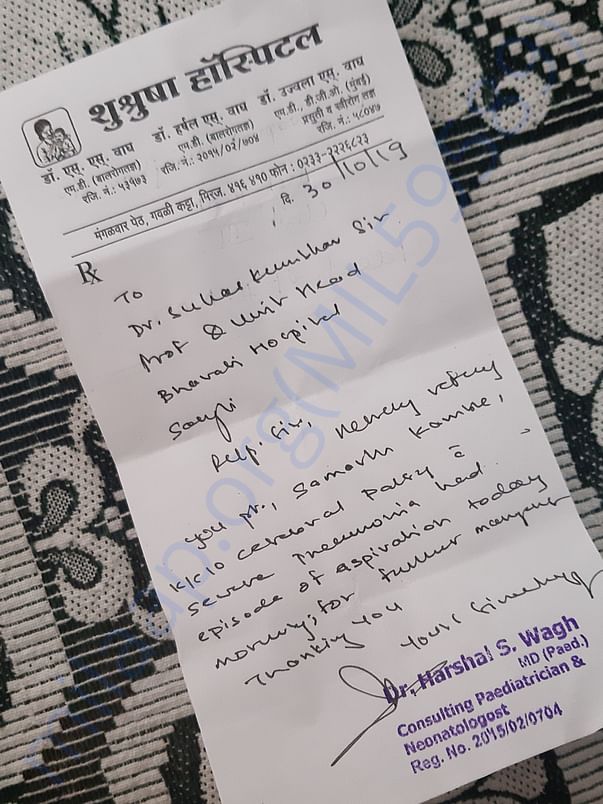 शुश्रुषा हॉस्पिटल
डॉ. एस. एस. वाघ
एम.डी. (बालरोगतज्ञ)
रजि. नं.: ५३१७३
डॉ. हर्षल एस. वाघ
एम.डी. (बालरोगतज्ञ)
रजि. नं.: २०१५/०२/७०४
डॉ. उज्वला एस. वाघ
एम.डी. डी.जी.ओ. (मुंबई)
प्रसुती व स्त्रीरोग तज्ञ
रजि. नं.: ५८०४७
मंगळवार पेठ, गवळी कट्टा, मिरज. ४१६ ४१० फोन : ०२३३-२२२६८२३
दि. 30/10/19
Rx
To
Dr. Suhas Kumbhar Sir.
Prof & Unit Head
Bharati Hospital
Sangli
Resp. Sir, Hereby refering
you pt., Samarth Kamble,
k/c/o cerebral palsy c̄
severe Pneumonia had
episode of aspiration today
morning, for further
Thanking you
Yours Sincerely
Dr. Harshal S. Wagh
MD (Paed.)
Consulting Paediatrician &
Neonatologost
Reg. No. 2015/02/0704